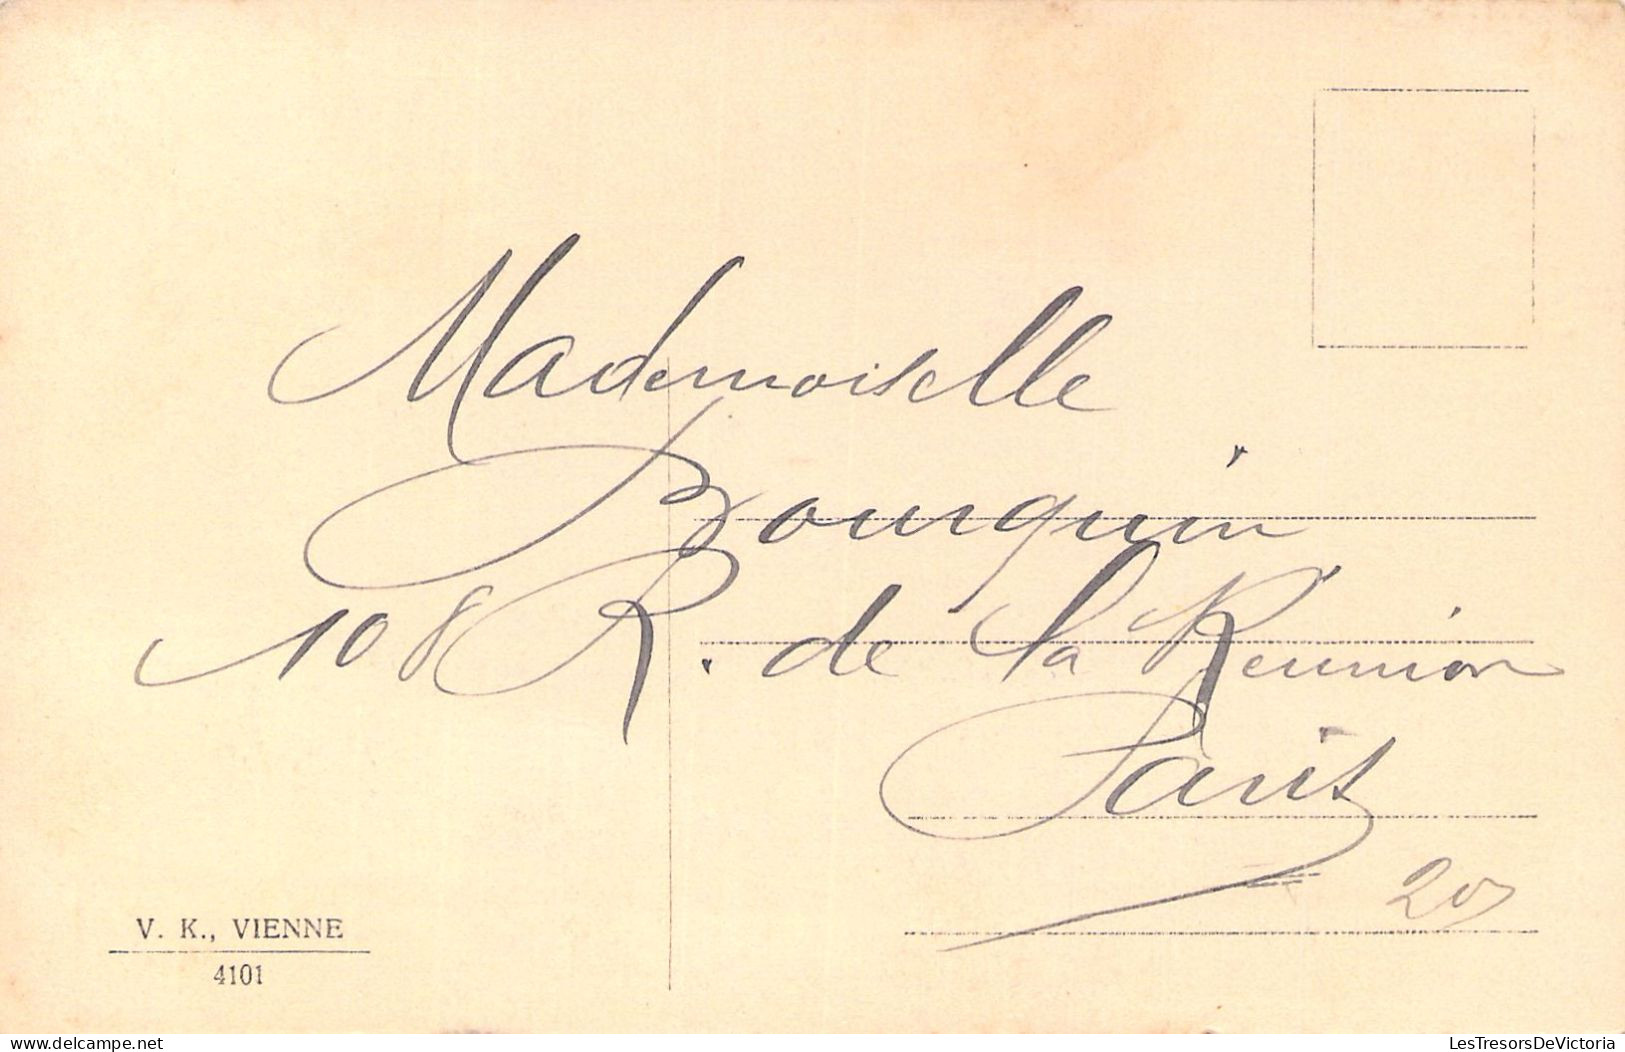 Mademoiselle
Bourquin
108 R. de la Reunion
Paris
20
V. K., VIENNE
4101
delcampe.net
LesTresorsDeVictoria